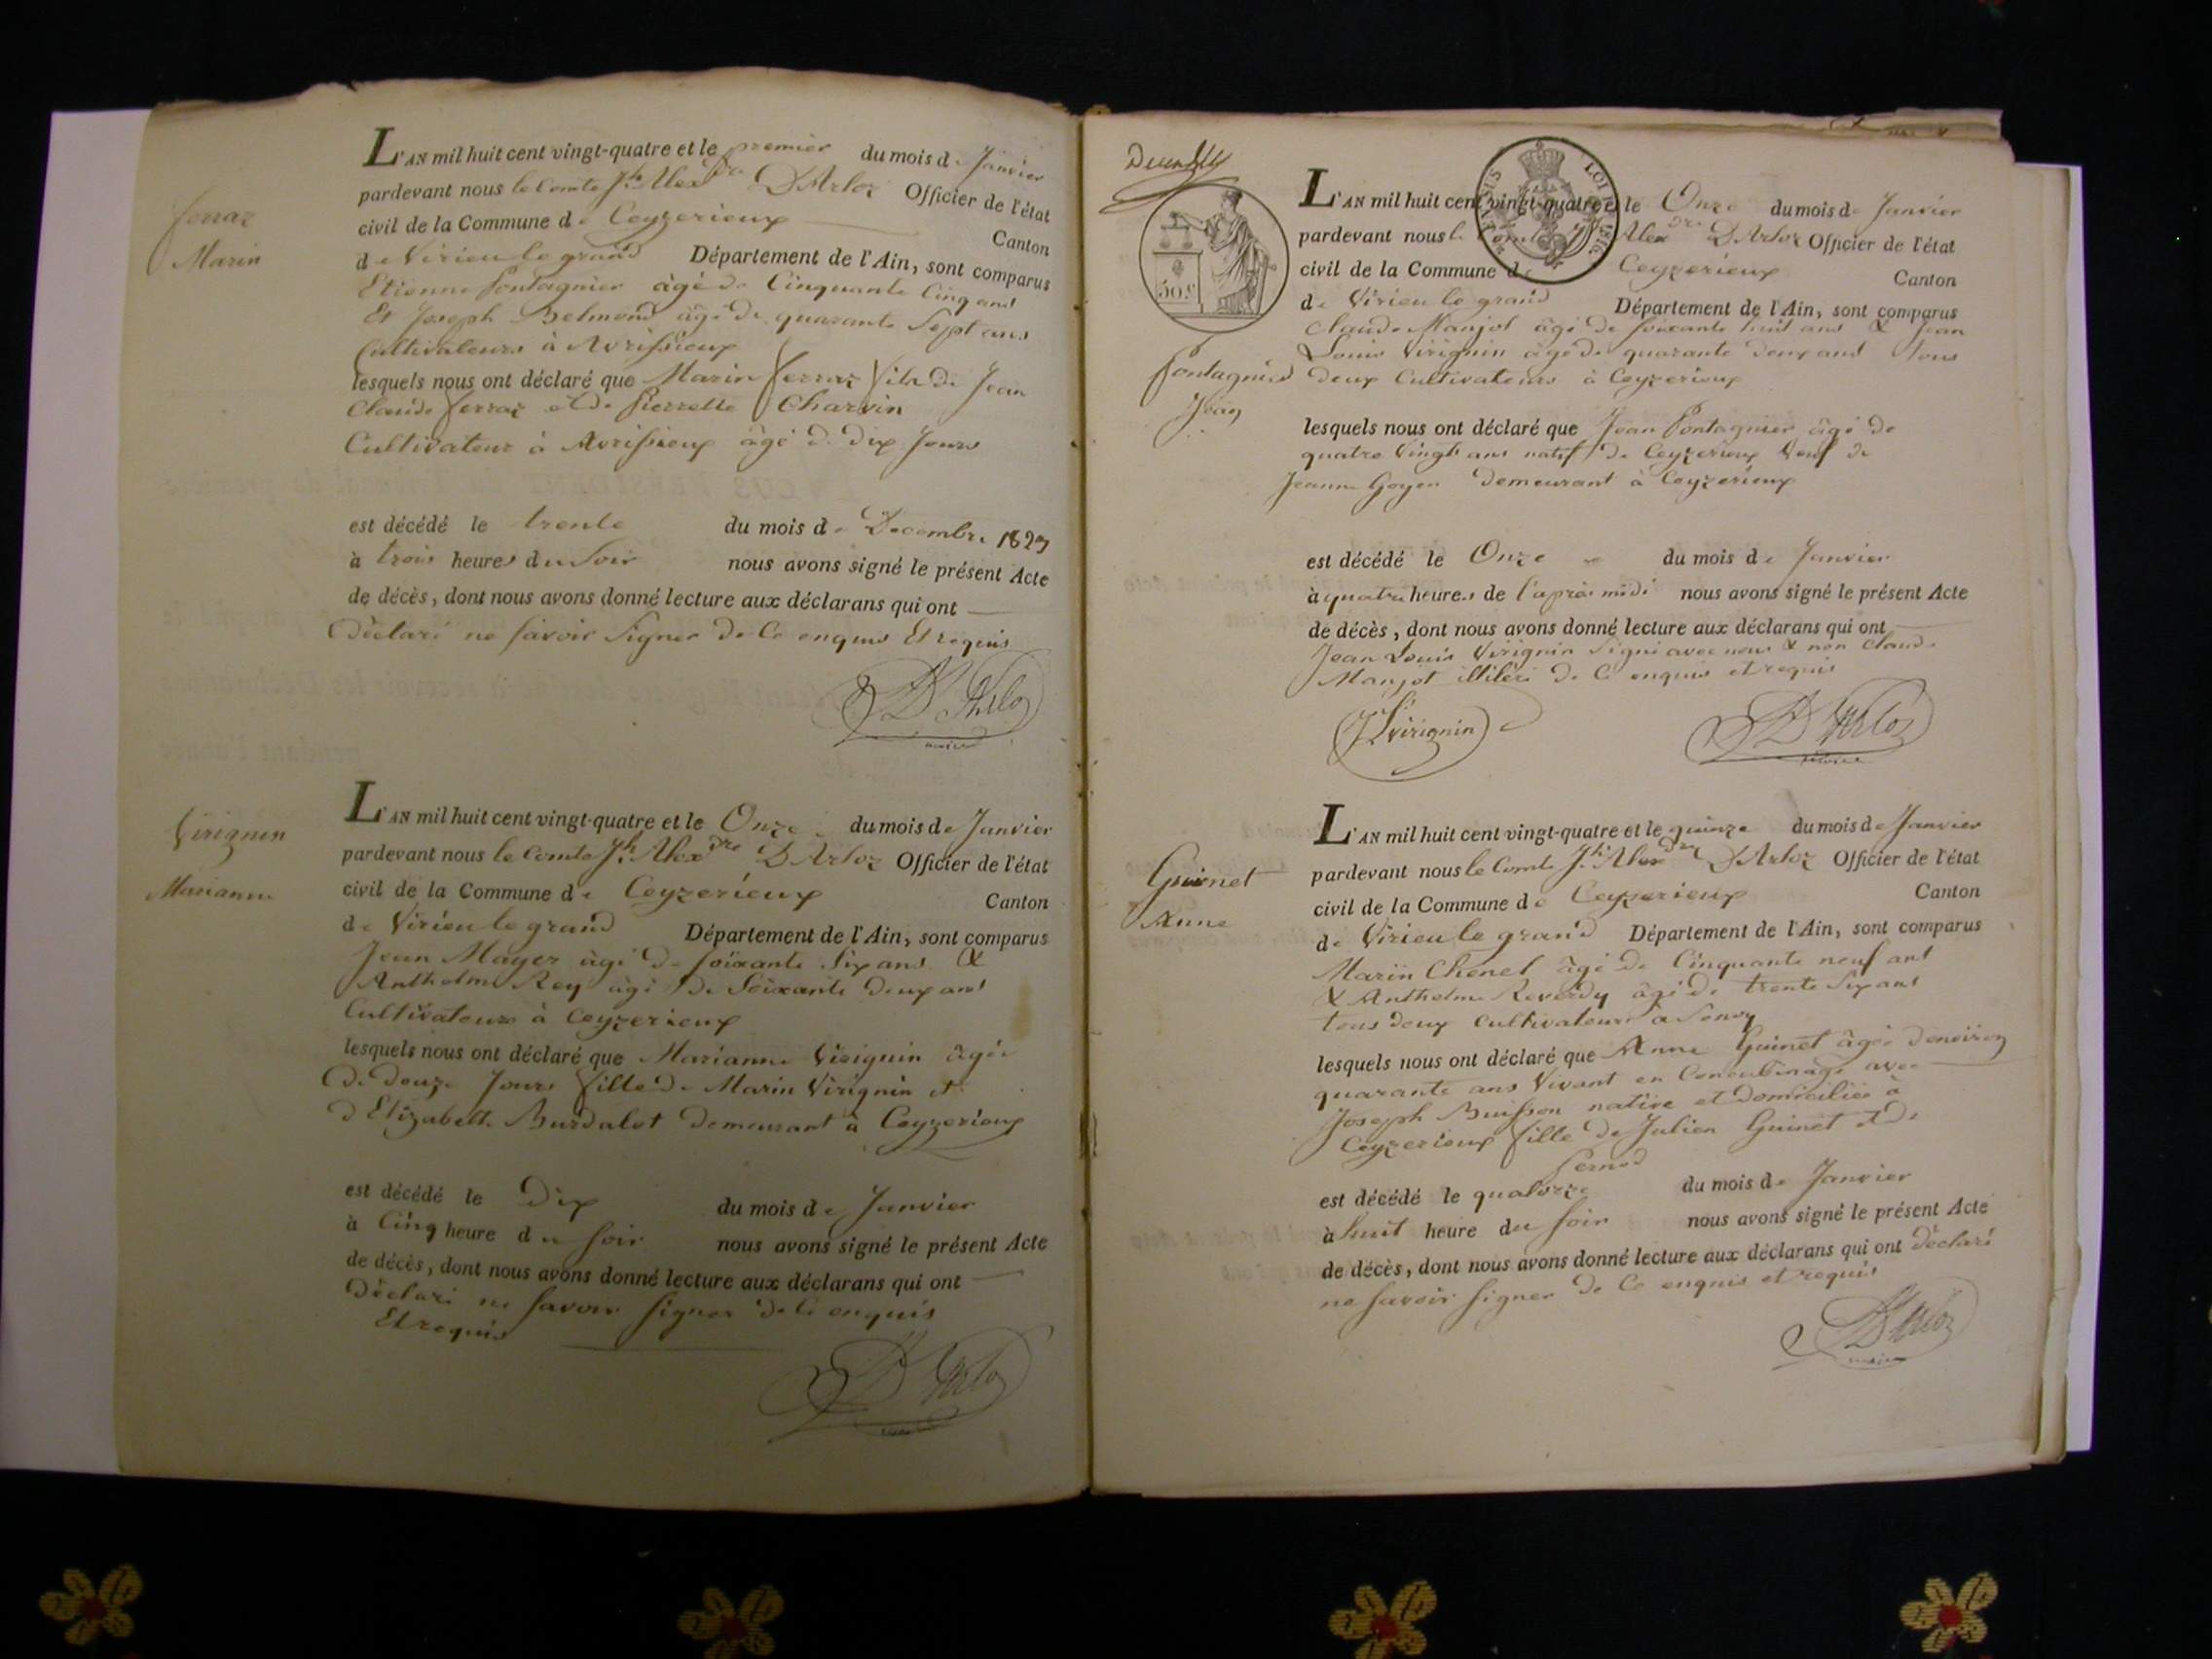 Ferraz
Marin
L'AN mil huit cent vingt-quatre et le premier du mois de Janvier
pardevant nous le Comte Jh Alexdre D'Arloz Officier de l'état
civil de la Commune de Ceyzerieux Canton
de Virieu le grand Département de l'Ain, sont comparus
Etienne Pontagnier âgé de Cinquante Cinq ans
Et Joseph Belmond âgé de quarante Sept ans
Cultivateurs à Avrissieux
lesquels nous ont déclaré que Marin Ferraz fils de Jean
Claude Ferraz et de Pierrette Charvin
Cultivateur à Avrissieux âgé de dix Jours
est décédé le trente du mois de Décembre 1823
à trois heures du Soir nous avons signé le présent Acte
de décès, dont nous avons donné lecture aux déclarans qui ont
Déclaré ne savoir Signer de Ce enquis Et requis
D'Arloz
Virignin
Marianne
L'AN mil huit cent vingt-quatre et le Onze du mois de Janvier
pardevant nous le Comte Jh Alexdre D'Arloz Officier de l'état
civil de la Commune de Ceyzerieux Canton
de Virieu le grand Département de l'Ain, sont comparus
Jean Mayer âgé de soixante Six ans &
Anthelme Rey âgé de Soixante deux ans
Cultivateurs à Ceyzerieux
lesquels nous ont déclaré que Marianne Virignin âgée
de douze Jours fille de Marin Virignin et
d'Elizabeth Burdalet demeurant à Ceyzerieux
est décédé le Dix du mois de Janvier
à Cinq heure du soir nous avons signé le présent Acte
de décès, dont nous avons donné lecture aux déclarans qui ont
Déclaré ne savoir signer de Ce enquis
Et requis
D'Arloz
50 c
LOI 1816
Pontagnier
Jean
L'AN mil huit cent vingt-quatre et le Onze du mois de Janvier
pardevant nous le Comte Alexdre D'Arloz Officier de l'état
civil de la Commune de Ceyzerieux Canton
de Virieu le grand Département de l'Ain, sont comparus
Claude Manjot âgé de soixante huit ans & Jean
Louis Virignin âgé de quarante deux ans tous
deux Cultivateurs à Ceyzerieux
lesquels nous ont déclaré que Jean Pontagnier âgé de
quatre Vingts ans natif de Ceyzerieux Veuf de
Jeanne Goyon demeurant à Ceyzerieux
est décédé le Onze du mois de Janvier
à quatre heures de l'après midi nous avons signé le présent Acte
de décès, dont nous avons donné lecture aux déclarans qui ont
Jean Louis Virignin Signé avec nous & non Claude
Manjot illiteré de Ce enquis et requis
JLVirignin
D'Arloz
Guinet
Anne
L'AN mil huit cent vingt-quatre et le quinze du mois de Janvier
pardevant nous le Comte Jh Alexdre D'Arloz Officier de l'état
civil de la Commune de Ceyzerieux Canton
de Virieu le grand Département de l'Ain, sont comparus
Marin Chenel âgé de Cinquante neuf ans
& Anthelme Reverdy âgé de trente Six ans
tous deux Cultivateurs à
lesquels nous ont déclaré que Anne Guinet âgée d'environ
quarante ans Vivant en Concubinage avec
Joseph Buisson native et domiciliée à
Ceyzerieux fille de Julien Guinet et de
est décédé le quatorze du mois de Janvier
à huit heure du soir nous avons signé le présent Acte
de décès, dont nous avons donné lecture aux déclarans qui ont déclaré
ne savoir signer de Ce enquis et requis
D'Arloz